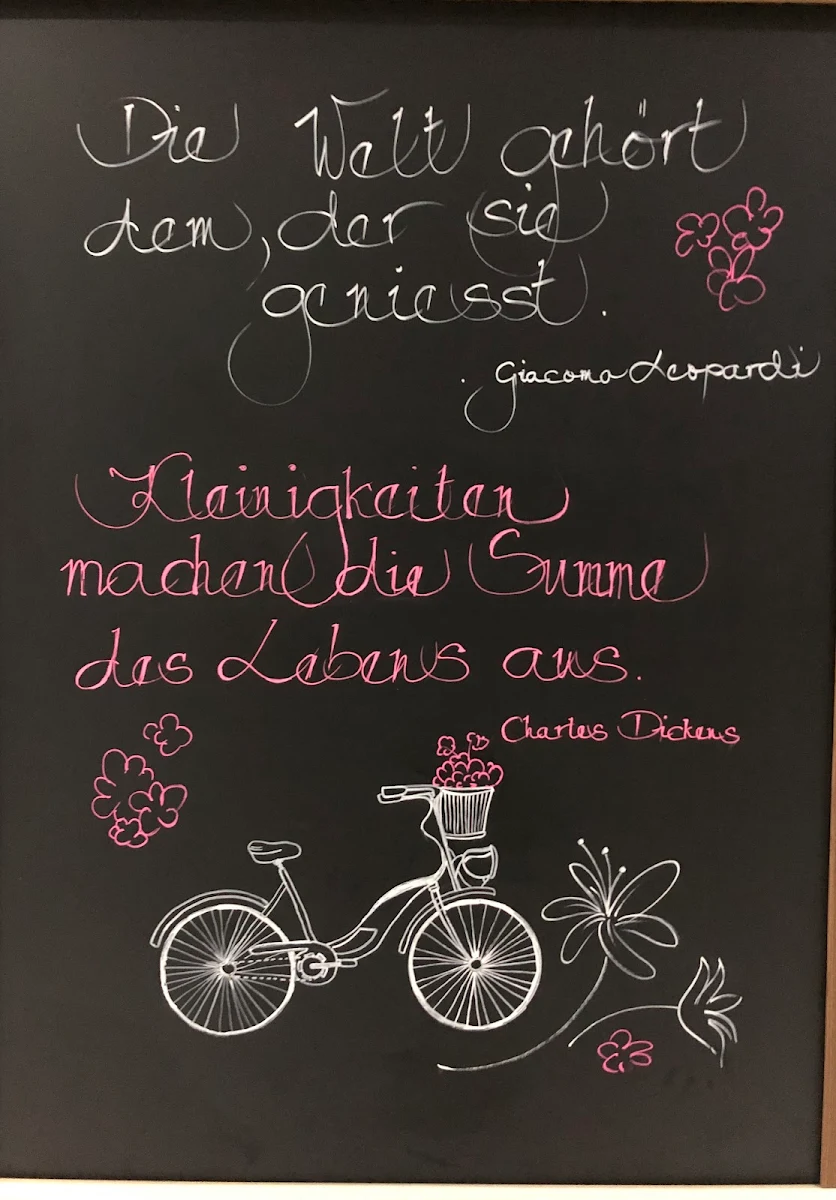 Die Welt gehört
dem, der sie
geniesst.
. Giacomo Leopardi
Kleinigkeiten
machen die Summe
des Lebens aus.
Charles Dickens